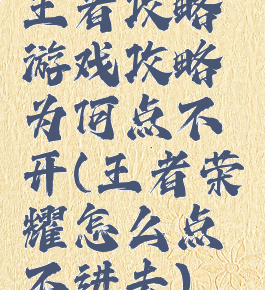 王者攻略
游戏攻略
为何点不
开(王者荣
耀怎么点
不进去)